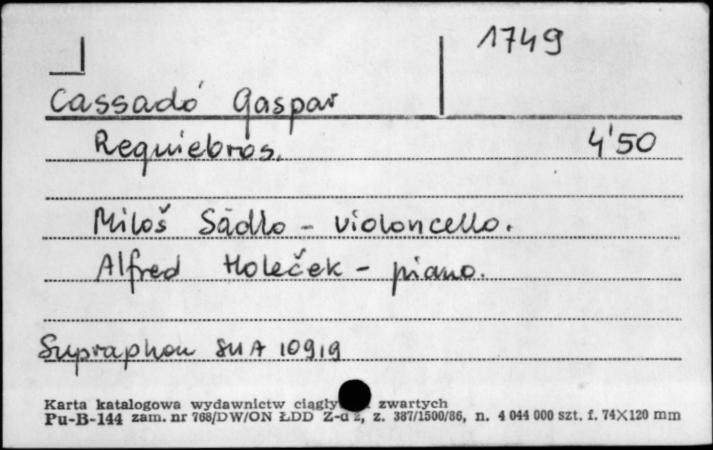 1749
Cassadó Gaspar
Requiebros. 4'50
Miloš Sádlo - violoncello.
Alfred Holeček - piano.
Supraphon SUA 10919
Karta katalogowa wydawnictw ciągły zwartych
Pu-B-144 zam. nr 768/DW/ON ŁDD Z-d 2, z. 387/1500/86, n. 4 044 000 szt. f. 74X120 mm